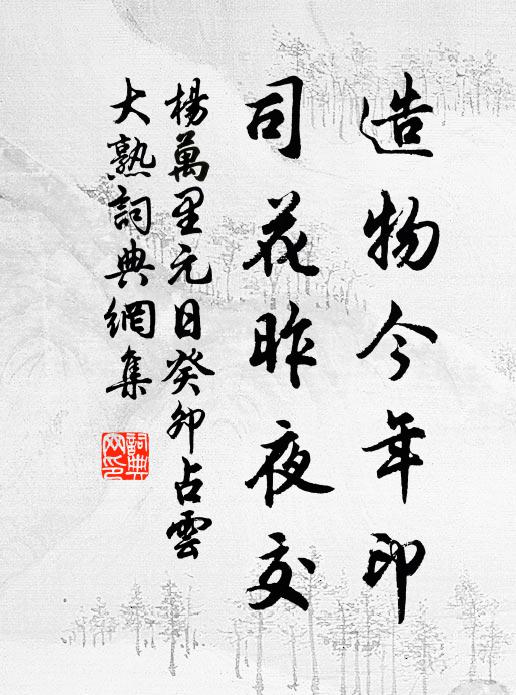 造物今年印
司花昨夜交
楊萬里元日癸卯占雲
大熟詞典網集
詞典網印